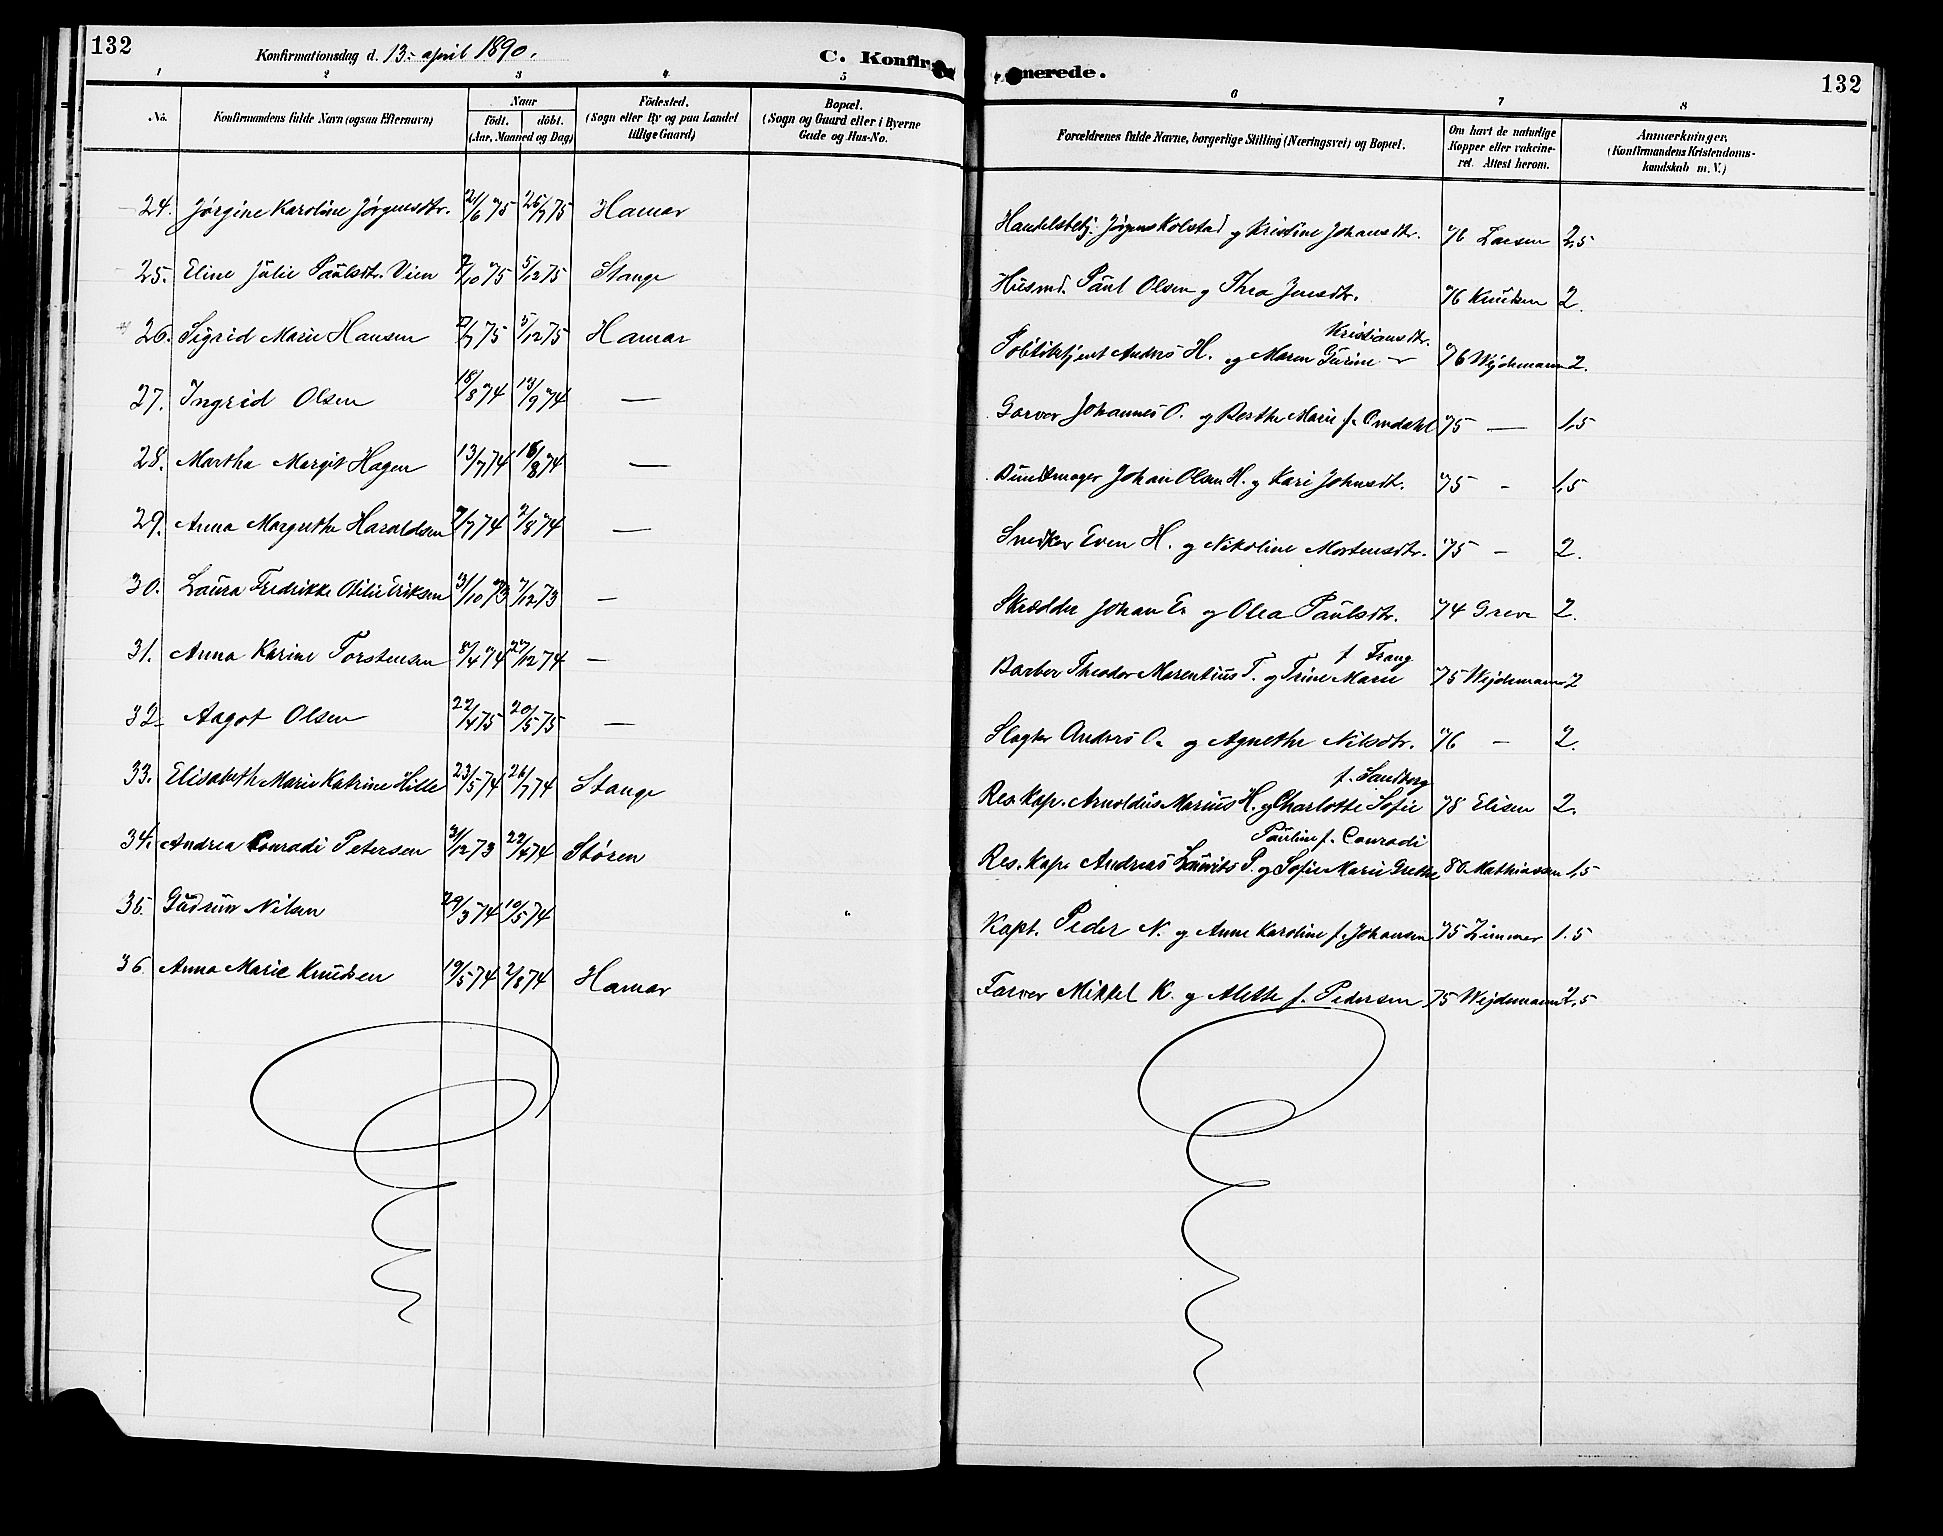 132
Konfirmationsdag d. 13. april 1890.
C. Konfir
1 2 3 4 5
No. Konfirmandens fulde Navn (ogsaa Efternavn) Naar Födested. Bopæl.
födt. döbt. (Sogn eller By og paa Landet (Sogn og Gaard eller i Byerne
(Aar, Maaned og Dag) tillige Gaard) Gade og Hus-No.
24. Jørgine Karoline Jørgensdtr. 21/6 75 25/7 75 Hamar
25. Eline Julie Paulsdtr. Vien 2/10 75 5/12 75 Stange
26. Sigrid Marie Hansen 75 5/12 75 Hamar
27. Ingrid Olsen 18/8 74 13/9 74 —
28. Martha Margit Hagen 13/7 74 16/8 74 —
29. Anna Margrethe Haraldsen 7/7 74 2/8 74 —
30. Laura Fredrikke Otilie Eriksen 31/10 73 7/12 73 —
31. Anna Karine Torstensen 8/4 74 27/12 74 —
32. Aagot Olsen 22/4 75 20/5 75 —
33. Elisabeth Marie Katrine Hille 23/5 74 26/7 74 Stange
34. Andrea Conradi Petersen 31/12 73 22/4 74 Støren
35. Gudrun Nilsen 29/3 74 10/5 74
36. Anna Marie Knudsen 19/5 74 2/8 74 Hamar
merede.
132
6 7 8
Forældrenes fulde Navne, borgerlige Stilling (Næringsvei) og Bopæl. Om havt de naturlige Anmærkninger.
Kopper eller vakcine- (Konfirmandens Kristendoms-
ret. Attest herom. kundskab m. V.)
Handelsbetj. Jørgen Kolstad og Kristine Johansdtr. 76 Larsen 2,5
Husmd. Paul Olsen og Thea Jensdtr. 76 Knudsen 2.
Kristiansdtr.
Politibetjent Anders H. og Maren Gurine 76 Wejdemann 2.
Garver Johannes O. og Berthe Marie f. Omdahl 75 — 1,5
Bundtmager Johan Olsen H. og Kari Johnsdt. 75 - 1,5
Snedker Even H. og Nikoline Mortensdtr. 75 - 2.
Skrædder Johan E. og Olea Paulsdtr. 74 Greve 2.
f. Frang
Barber Theodor Marentius T. og Trine Marie 75 Wejdemann 2
Slagter Anders O. og Agnethe Nilsdtr. 76 - 2.
f. Sandberg
Res. Kap. Arnoldus Marius H. og Charlotte Sofie 78 Elisen 2.
Pauline f. Conradi
Res. Kap. Andreas Lauritz P. og Sofie Marie Grethe 80 Mathiassen 1,5
Kapt. Peder N. og Anne Karoline f. Johansen 75 Zimmer 1.5
Farver Mikkel K. og Alette f. Pedersen 75 Wejdemann 2,5